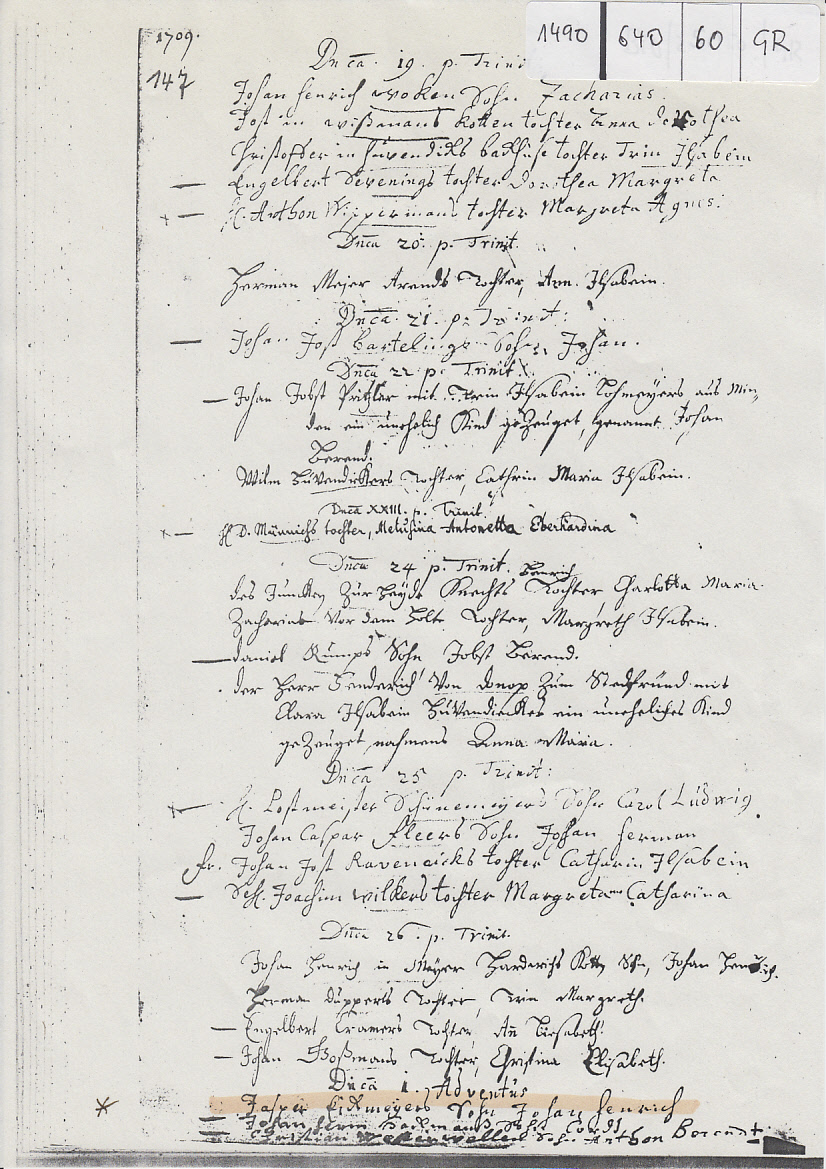 1490 640 60 GR
1709.
147
Dnca. 19. p. Trinit
Johan Henrich Woken Sohn Zacharias.
Jost in Wißmans Kotten tochter Anna Dorothea
Christoffer in Hüvendicks backhuse tochter Trin Ilsabein
Engelbert Sevenings tochter Dorothea Margreta
H. Anthon Wippermans tochter Margreta Agnes.
Dnca 20. p. Trinit.
Herman Meier Arends Tochter, Ann. Ilsabein.
Dnca. 21. p. Trinit:
Johan Jost Bartelings Sohn, Johan.
Dnca 22 p. Trinit.
Johan Jobst mit Trin Ilsabein Lohmeyers aus Min
den ein unehelich Kind gezeuget, genannt Johan
Berend.
Wilm Hüvendickers Tochter, Cathrin Maria Ilsabein.
Dnca XXIII. p. Trinit.
H D. Münnichs tochter, Melusina Antonetta Eberhardina
Dnca 24 p. Trinit.
des Zur Heyde Knechts Henrich Tochter Charlotta Maria.
Zacharias Vor dem Holte Tochter, Margreth Ilsabein.
Daniel Rumps Sohn Jobst Berend.
der Herr Fenderich Von Donop Zum Stedefreund mit
Clara Ilsabein Hüvendickes ein uneheliches Kind
gezeuget nahmens Anna Maria.
Dnca 25 p. Trinit:
H. Postmeister Schünemeyers Sohn Carol Ludwig.
Johan Caspar Fleers Sohn Johan Herman
Fr. Johan Jost Ravendicks tochter Catharin Ilsabein
Sehl. Joachim Wilkers tochter Margreta Catharina
Dnca 26. p. Trinit.
Johan Henrich in Meyer Kotten Sohn, Johan Henrich.
Herman Düpperts Tochter, Trin Margreth.
Engelbert Cramers Tochter, An Liesabeth.
Johan Tochter, Christina Elisabeth.
Dnca 1. Adventus
Jasper Eickmeyers Sohn Johan Henrich
Johan Herm Sohn Cordt
Christian Sohn Anthon Berendt